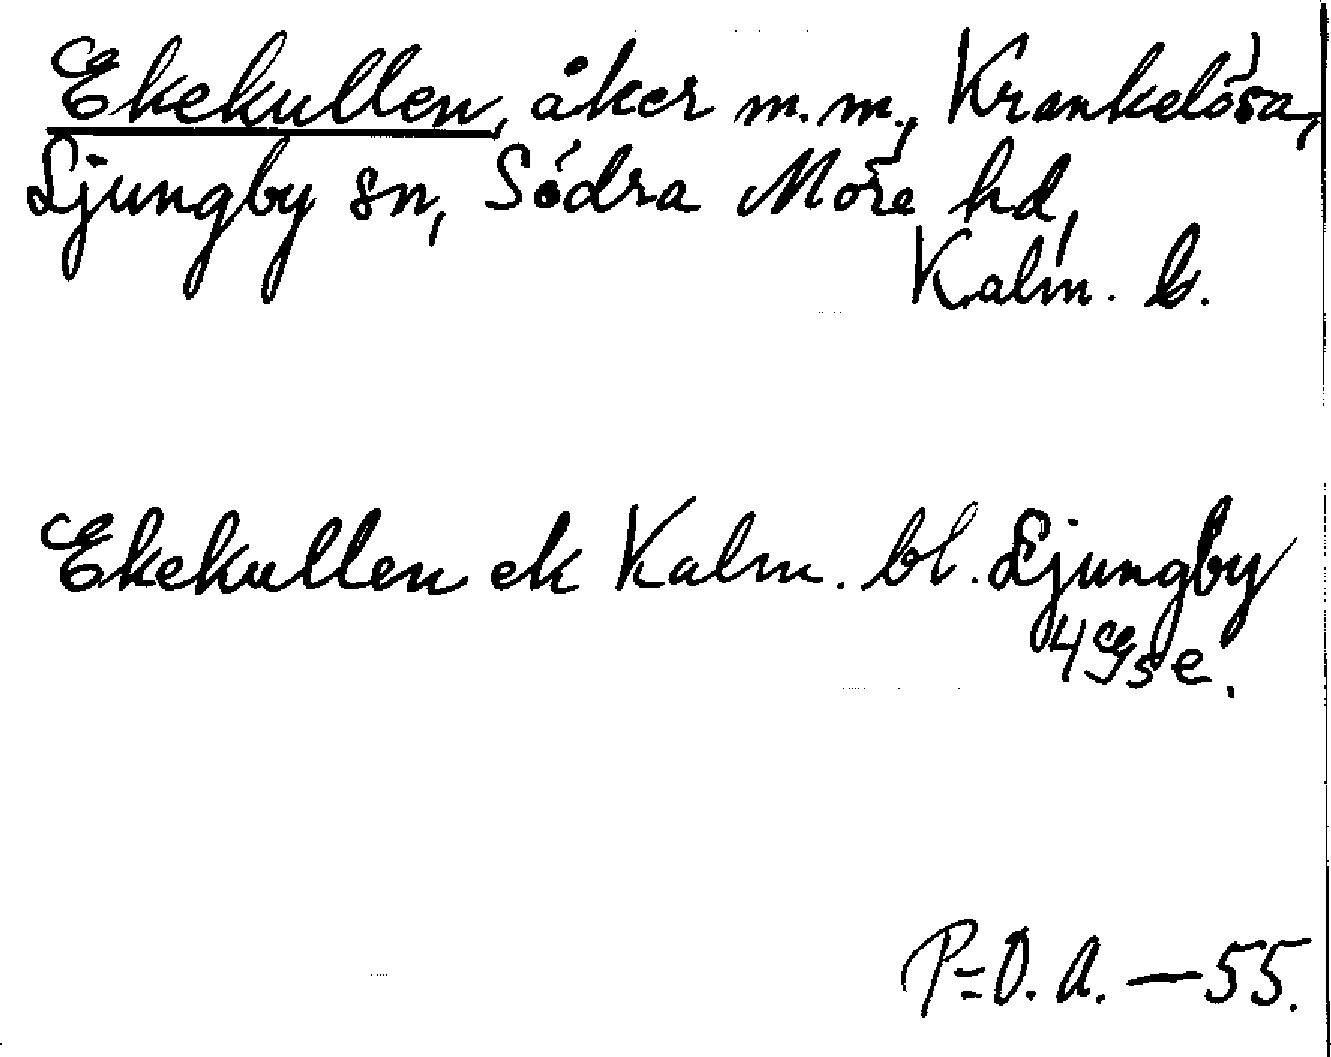 Ekekullen, åker m.m., Krankelösa,
Ljungby sn, Södra Möre hd,
Kalm. l.
Ekekullen ek Kalm. bl. Ljungby
4 Gse.
P=O. A. — 55.